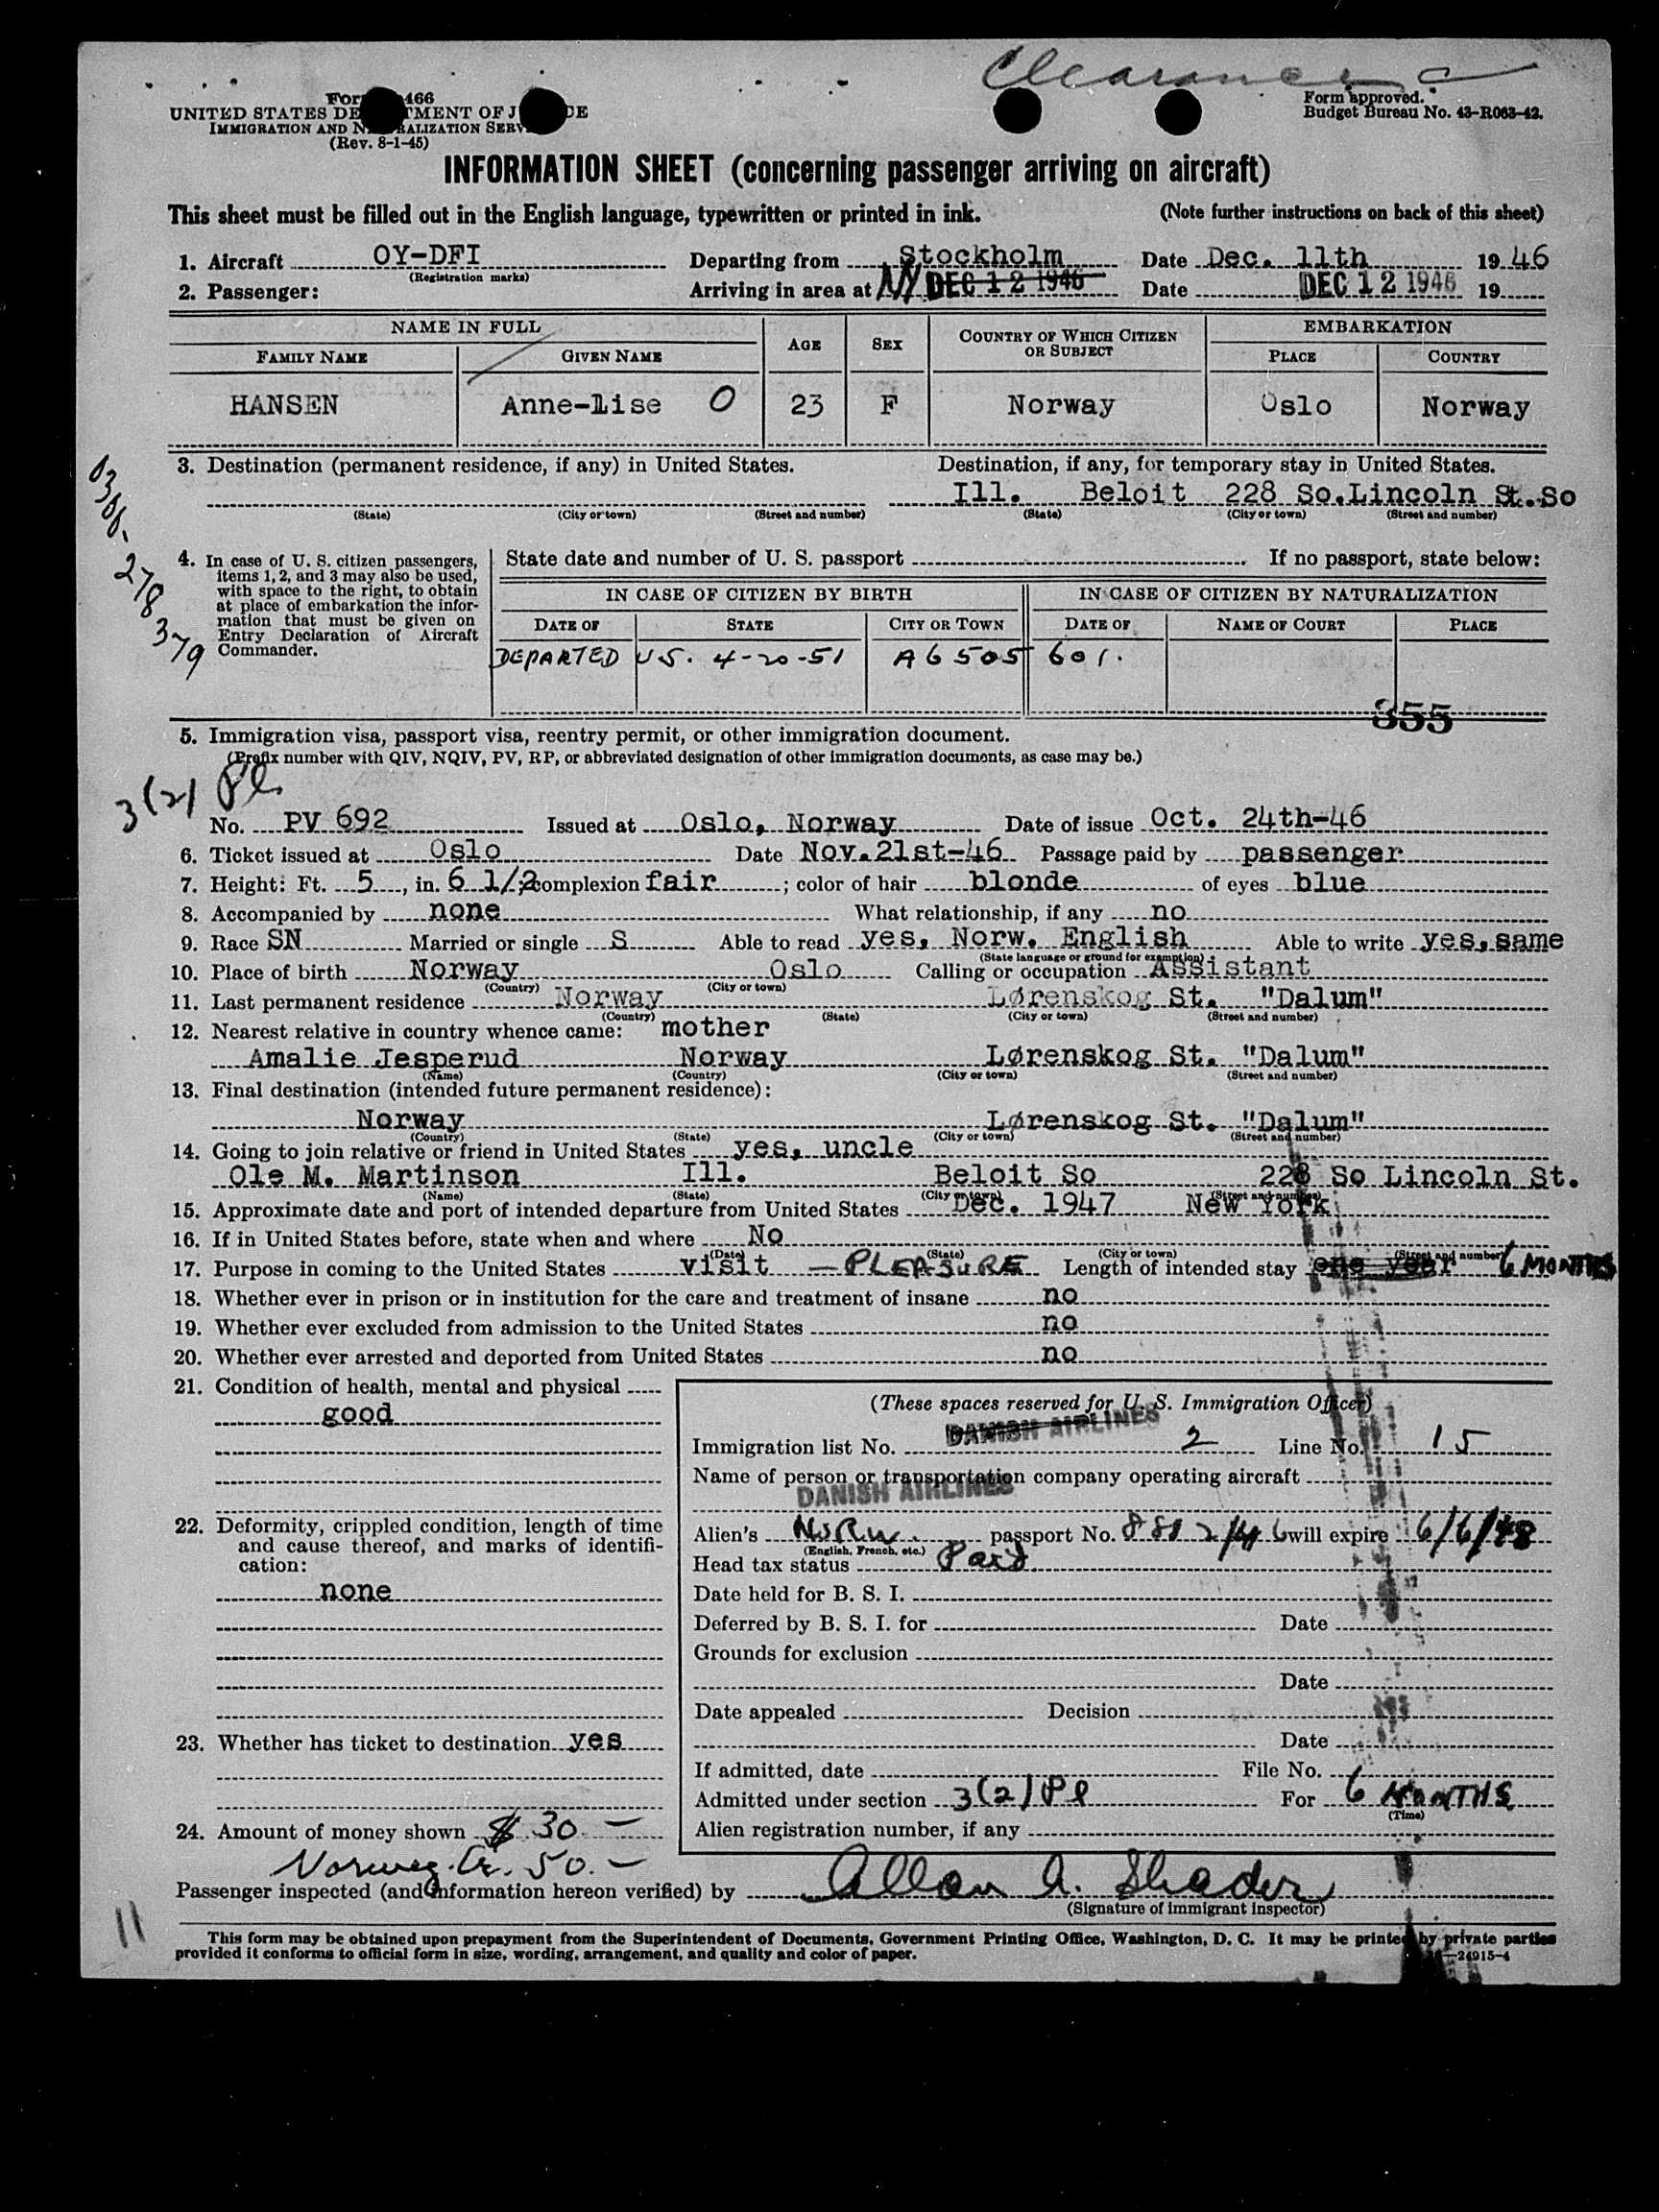 Clearance
Form 466
UNITED STATES DE TMENT OF J CE
IMMIGRATION AND N RALIZATION SERV
(Rev. 8-1-45)
Form approved.
Budget Bureau No. 43-R063-42.
INFORMATION SHEET (concerning passenger arriving on aircraft)
This sheet must be filled out in the English language, typewritten or printed in ink. (Note further instructions on back of this sheet)
1. Aircraft OY-DFI Departing from Stockholm Date Dec. 11th 1946
(Registration marks)
2. Passenger: Arriving in area at NY DEC 12 1946 Date DEC 12 1946 19
NAME IN FULL AGE SEX COUNTRY OF WHICH CITIZEN OR SUBJECT EMBARKATION
FAMILY NAME GIVEN NAME PLACE COUNTRY
HANSEN Anne-lise O 23 F Norway Oslo Norway
3. Destination (permanent residence, if any) in United States. Destination, if any, for temporary stay in United States.
Ill. Beloit 228 So.Lincoln St.So
(State) (City or town) (Street and number) (State) (City or town) (Street and number)
0300-
278
379
4. In case of U. S. citizen passengers,
items 1, 2, and 3 may also be used,
with space to the right, to obtain
at place of embarkation the infor-
mation that must be given on
Entry Declaration of Aircraft
Commander.
State date and number of U. S. passport If no passport, state below:
IN CASE OF CITIZEN BY BIRTH IN CASE OF CITIZEN BY NATURALIZATION
DATE OF STATE CITY OR TOWN DATE OF NAME OF COURT PLACE
DEPARTED U.S. 4-20-51 A6 505 601.
355
5. Immigration visa, passport visa, reentry permit, or other immigration document.
(Prefix number with QIV, NQIV, PV, RP, or abbreviated designation of other immigration documents, as case may be.)
3(2) Pl.
No. PV 692 Issued at Oslo, Norway Date of issue Oct. 24th-46
6. Ticket issued at Oslo Date Nov.21st-46 Passage paid by passenger
7. Height: Ft. 5, in. 6 1/2; complexion fair; color of hair blonde of eyes blue
8. Accompanied by none What relationship, if any no
9. Race SN Married or single S Able to read yes, Norw. English Able to write yes, same
(State language or ground for exemption)
10. Place of birth Norway Oslo Calling or occupation Assistant
(Country) (City or town)
11. Last permanent residence Norway Lørenskog St. "Dalum"
(Country) (State) (City or town) (Street and number)
12. Nearest relative in country whence came: mother
Amalie Jesperud Norway Lørenskog St. "Dalum"
(Name) (Country) (City or town) (Street and number)
13. Final destination (intended future permanent residence):
Norway Lørenskog St. "Dalum"
(Country) (State) (City or town) (Street and number)
14. Going to join relative or friend in United States yes, uncle
Ole M. Martinson Ill. Beloit So 228 So Lincoln St.
(Name) (State) (City or town) (Street and number)
15. Approximate date and port of intended departure from United States Dec. 1947 New York
16. If in United States before, state when and where No
(Date) (State) (City or town) (Street and number)
17. Purpose in coming to the United States visit - PLEASURE Length of intended stay one year 6 MONTHS
18. Whether ever in prison or in institution for the care and treatment of insane no
19. Whether ever excluded from admission to the United States no
20. Whether ever arrested and deported from United States no
21. Condition of health, mental and physical
good
22. Deformity, crippled condition, length of time
and cause thereof, and marks of identifi-
cation:
none
23. Whether has ticket to destination yes
24. Amount of money shown $ 30 -
Norweg. Cr. 50.-
(These spaces reserved for U. S. Immigration Officer)
DANISH AIRLINES
Immigration list No. 2 Line No. 15
Name of person or transportation company operating aircraft
DANISH AIRLINES
Alien's Norw. passport No. 881 2/46 will expire 6/6/48
(English, French, etc.)
Head tax status Paid
Date held for B. S. I.
Deferred by B. S. I. for Date
Grounds for exclusion
Date
Date appealed Decision
Date
If admitted, date File No.
Admitted under section 3(2) Pl For 6 MONTHS
(Time)
Alien registration number, if any
Passenger inspected (and information hereon verified) by Allan A. Shader
(Signature of immigrant inspector)
11
This form may be obtained upon prepayment from the Superintendent of Documents, Government Printing Office, Washington, D. C. It may be printed by private parties
provided it conforms to official form in size, wording, arrangement, and quality and color of paper. 16-24915-4